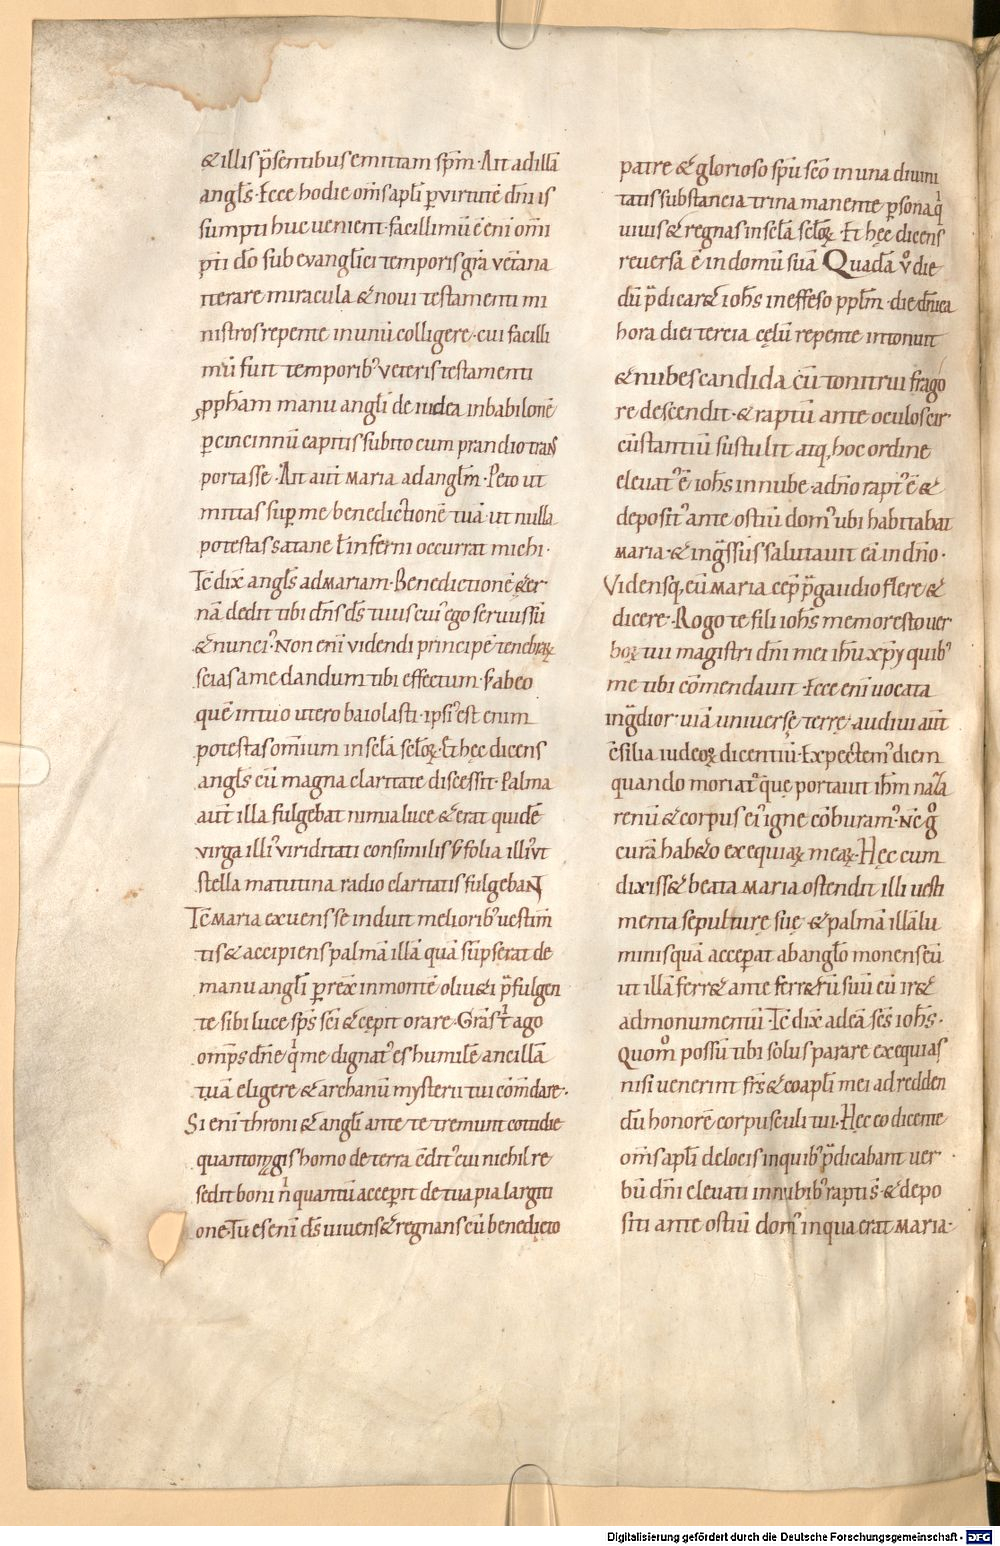 & illis p̄sentibus emittam sp̄m · Ait ad illā
angl̄s · Ecce hodie om̄s apl̄i ꝑ virtutē dn̄i is
sumpti huc uenient · facillimū ē eni om̄i
pt̄i dō sub evangl̄ici temporis gr̄a vet̄ana
iterare miracula & noui testamenti mi
nistros repente in unū colligere · cui facilli
mū fuit temporibꝰ veteris testamenti
ꝓpph̄am manu angl̄i de iudea in babilonē
ꝑ cincinnū capitis subito cum prandio trans
portasse · Ait aūt maria ad angl̄m · Peto ut
mittas suꝑ me benedictionē tuā ut nulla
potestas satane ł inferni occurrat michi ·
Tc̄ dix̄ angl̄s ad mariam · Benedictionē &er
nā dedit tibi dn̄s ds̄ tuus cuiꝰ ego seruus sū
& nunciꝰ · Non eni videndi principē tenebraꝝ
scias a me dandum tibi effectum · s; ab eo
quē in tuo utero baiolasti · ipsiꝰ est enim
potestas omnium in scl̄a scl̄oꝝ · Et hęc dicens
angl̄s cū magna claritate discessit · Palma
aūt illa fulgebat nimia luce & erat quidē
virga illiꝰ viriditati consimilis s; folia illiꝰ vt
stella matutina radio claritatis fulgebaNT
Tc̄ maria exuens se induit melioribꝰ uestim̄
tis & accipiens palmā illā quā sūpserat de
manu angl̄i ꝑrex̄ in montē oliu&i p̄fulgen
te sibi luce sp̄s sc̄i & cępit orare · Gr̄as t ago
omp̄s dn̄e qi me dignatꝰ es humilē ancillā
tuā eligere & archanū mysterii tui cōm̄dare ·
Si enī throni & angl̄i ante te tremunt cottidie
quanto mgis homo de terra c̄ditꝰ cui nichil re
sedit boni n̄ quantū acceꝑit de tua pia largiti
one · Tu es enī ds̄ uiuens & regnans cū benedicto
patre & glorioso sp̄u sc̄o in una diuini
tatis substancia trina manente ꝑsona qi
uiuis & regnas in scl̄a scl̄oꝝ · Et hęc dicens
reuersa ē in domū suā Quadā vo die
dū p̄dicar& ioh̄s in effeso pplm̄ · die dn̄ica
hora diei tercia cęlū repente intonuit
& nubes candida cū tonitrui frago
re descendit · & raptū ante oculos cir
cūstantiū sustulit atq, hoc ordine
eleuatꝰ ē ioh̄s in nube · a dn̄o raptꝰ ē &
depositꝰ ante ostiū domꝰ ubi habitabat
maria · & ing̃ssus salutauit eā in dn̄o ·
Vidensq, eū maria cep̄ p̄ gaudio flere &
dicere · Rogo te fili ioh̄s memor esto uer
boꝝ tui magistri dn̄i mei ih̄u xp̄y quibꝰ
me tibi cōmendauit · Ecce enī uocata
ing̃dior · uiā universę terrę · audiui aūt
c̄silia iudeoꝝ dicentiū · Expectemꝰ diem
quando moriatꝰ quę portauit ih̄m naza
renū & corpus eiꝰ igne cōburamꝰ · Nc̄ go
curā hab&o exequiaꝝ meaꝝ · Hęc cum
dixiss& beata maria ostendit illi uesti
menta sepulturę suę & palmā illā lu
minis quā acceꝑat ab anglō monens eū
ut illā ferr& ante ferr&rū suū cū ir&
ad monumentū · Tc̄ dix̄ ad eā sc̄s ioh̄s ·
Quomo possū tibi solus parare exequias
nisi uenerint fr̄s & coapl̄i mei ad redden
dū honorē corpusculi tui · Hęc eo dicente
om̄s apl̄i de locis in quibꝰ p̄dicabant uer
bū dn̄i eleuati in nubibꝰ raptis & depo
siti ante ostiū domꝰ in qua erat maria ·
Digitalisierung gefördert durch die Deutsche Forschungsgemeinschaft · DFG